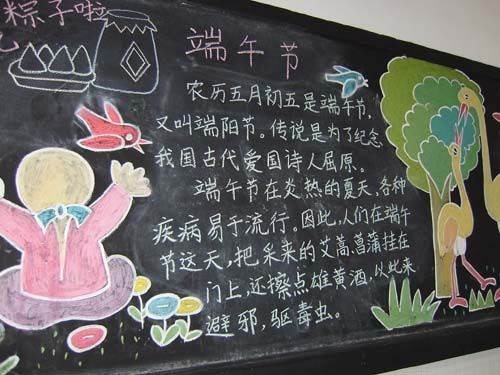 粽子啦
端午节
农历五月初五是端午节,
又叫端阳节。传说是为了纪念
我国古代爱国诗人屈原。
端午节在炎热的夏天、各种
疾病易于流行。因此,人们在端午
节这天,把采来的艾蒿、菖蒲挂在
门上,还擦点雄黄酒,以此来
避邪,驱毒虫。